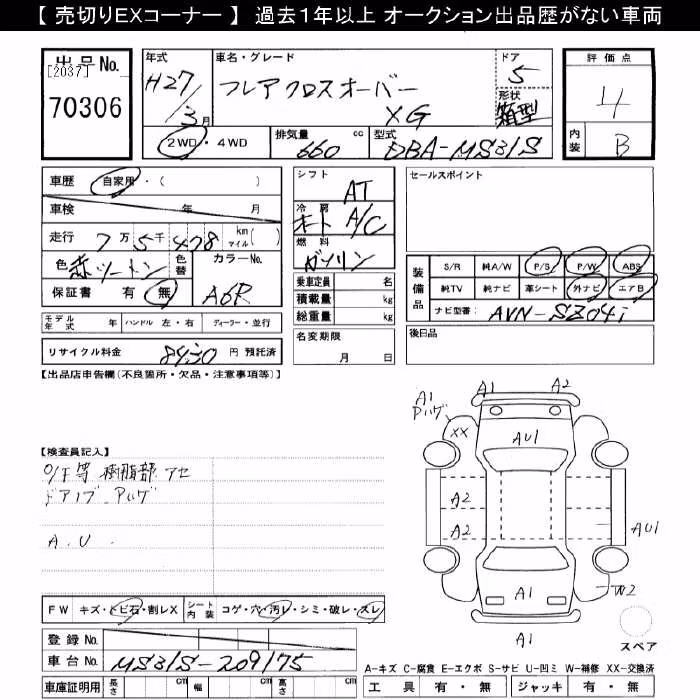 【 売切りEXコーナー 】 過去1年以上 オークション出品歴がない車両
出品No.
[2037]
70306
年式
H27/3月
車名・グレード
フレアクロスオーバー
XG
ドア
5
形状
箱型
評価点
4
内装
B
2WD・4WD
排気量 660 cc
型式 DBA-MS31S
車歴 自家用・( )
車検 年 月
走行 7万5千478 km マイル( )
色 赤ツートン
色替
カラーNo. A6R
保証書 有 無
モデル年式 年 ハンドル 左・右 ディーラー・並行
リサイクル料金 8430 円 預託済
シフト AT
冷房 オート A/C
燃料 ガソリン
乗車定員 名
積載量 kg
総重量 kg
名変期限
月 日
セールスポイント
装備品
S/R 純A/W P/S P/W ABS
純TV 純ナビ 革シート 外ナビ エアB
ナビ型番: AVN-SZ04i
後日品
【出品店申告欄(不良箇所・欠品・注意事項等)】
【検査員記入】
O/F等 樹脂部 アセ
ドアノブ Pハゲ
A.U
FW キズ・トビ石・割レX
シート内装 コゲ・穴・汚レ・シミ・破レ・スレ
登録 No.
車台 No. MS31S-209175
車庫証明用 長さ cm 幅 cm 高さ cm
A1 A2
A1
Pハゲ
XX
AU1
A2
A2
AU1
W2
A1
A1
スペア
A-キズ C-腐食 E-エクボ S-サビ U-凹ミ W-補修 XX-交換済
工具 有・無 ジャッキ 有・無